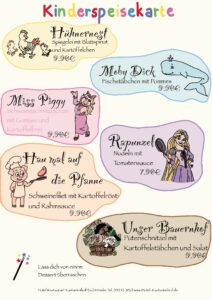 Kinderspeisekarte
Hühnernest
Spiegelei mit Blattspinat
und Kartöffelchen
9,90€
Moby Dick
Fischstäbchen mit Pommes
9,90€
Miss Piggy
Schweineschnitzelchen
mit Gemüse und
Kartoffelbrei
9,90€
Rapunzel
Nudeln mit
Tomatensauce
7,90€
Hau mal auf
die Pfanne
Schweinefilet mit Kartoffelrösti
und Rahmsauce
9,90€
Unser Bauernhof
Putenschnitzel mit
Kartoffelstäbchen und Salat
9,90€
Lass dich von einem
Dessert überraschen